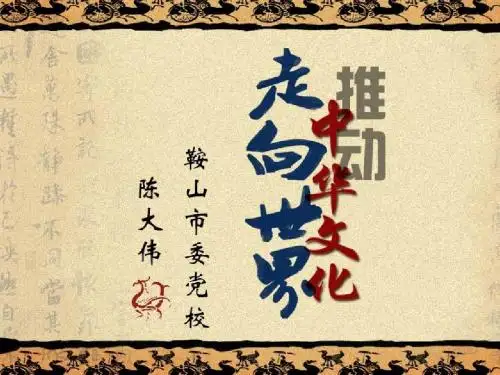 推动
中华文化
走向世界
鞍山市委党校
陈大伟